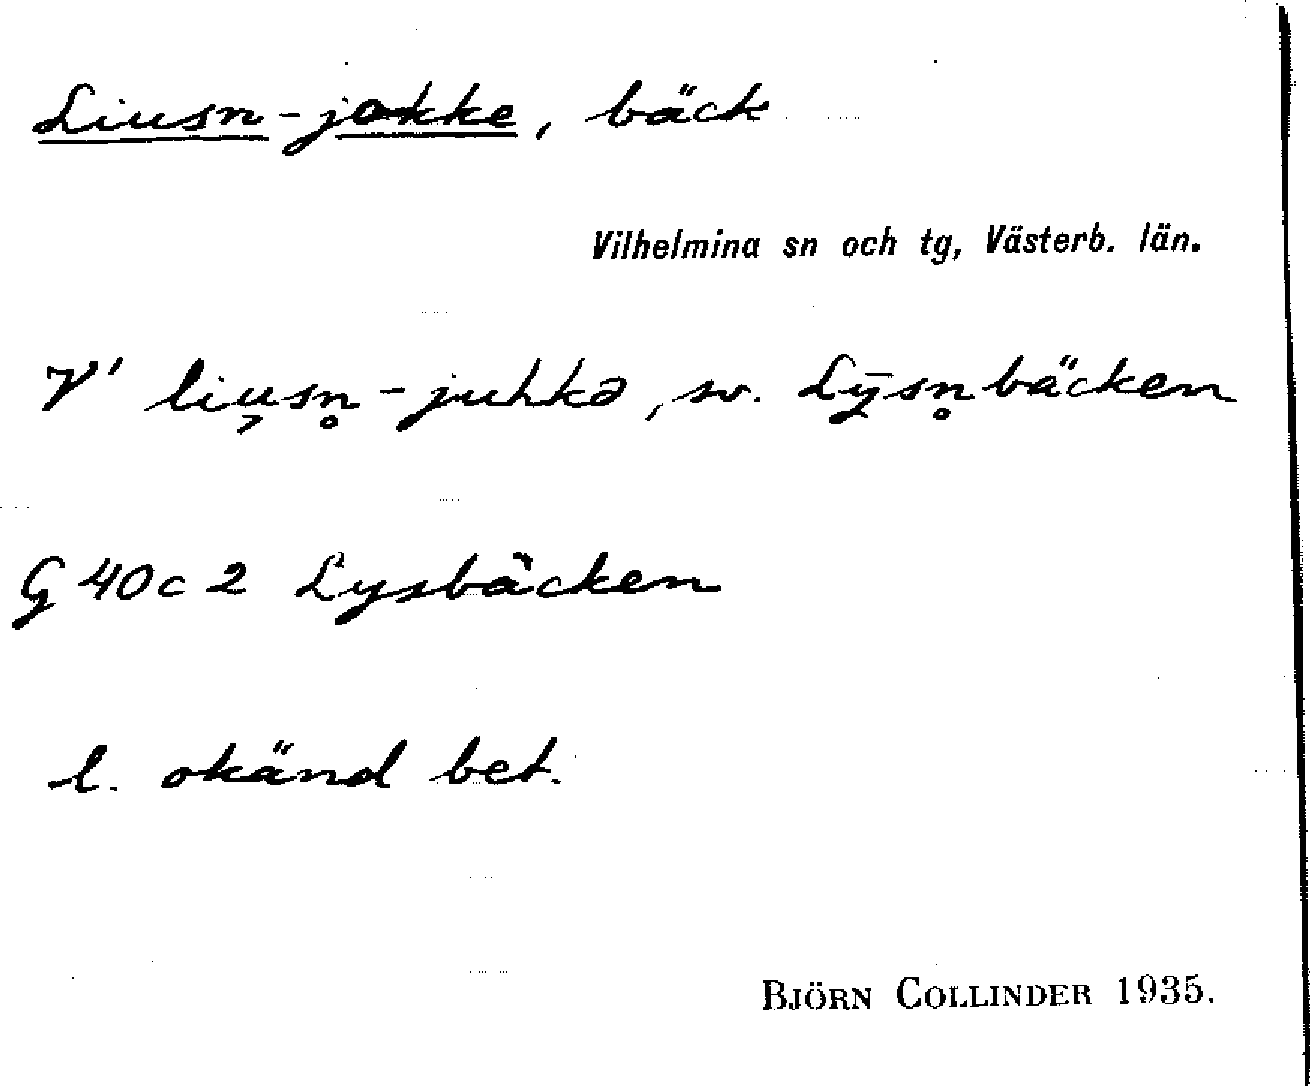 Liusn-jokke, bäck
Vilhelmina sn och tg, Västerb. län.
V' liu̯sn̥-juhkə, sv. Lȳsn̥bäcken
G 40c2 Lysbäcken
l. okänd bet.
BJÖRN COLLINDER 1935.